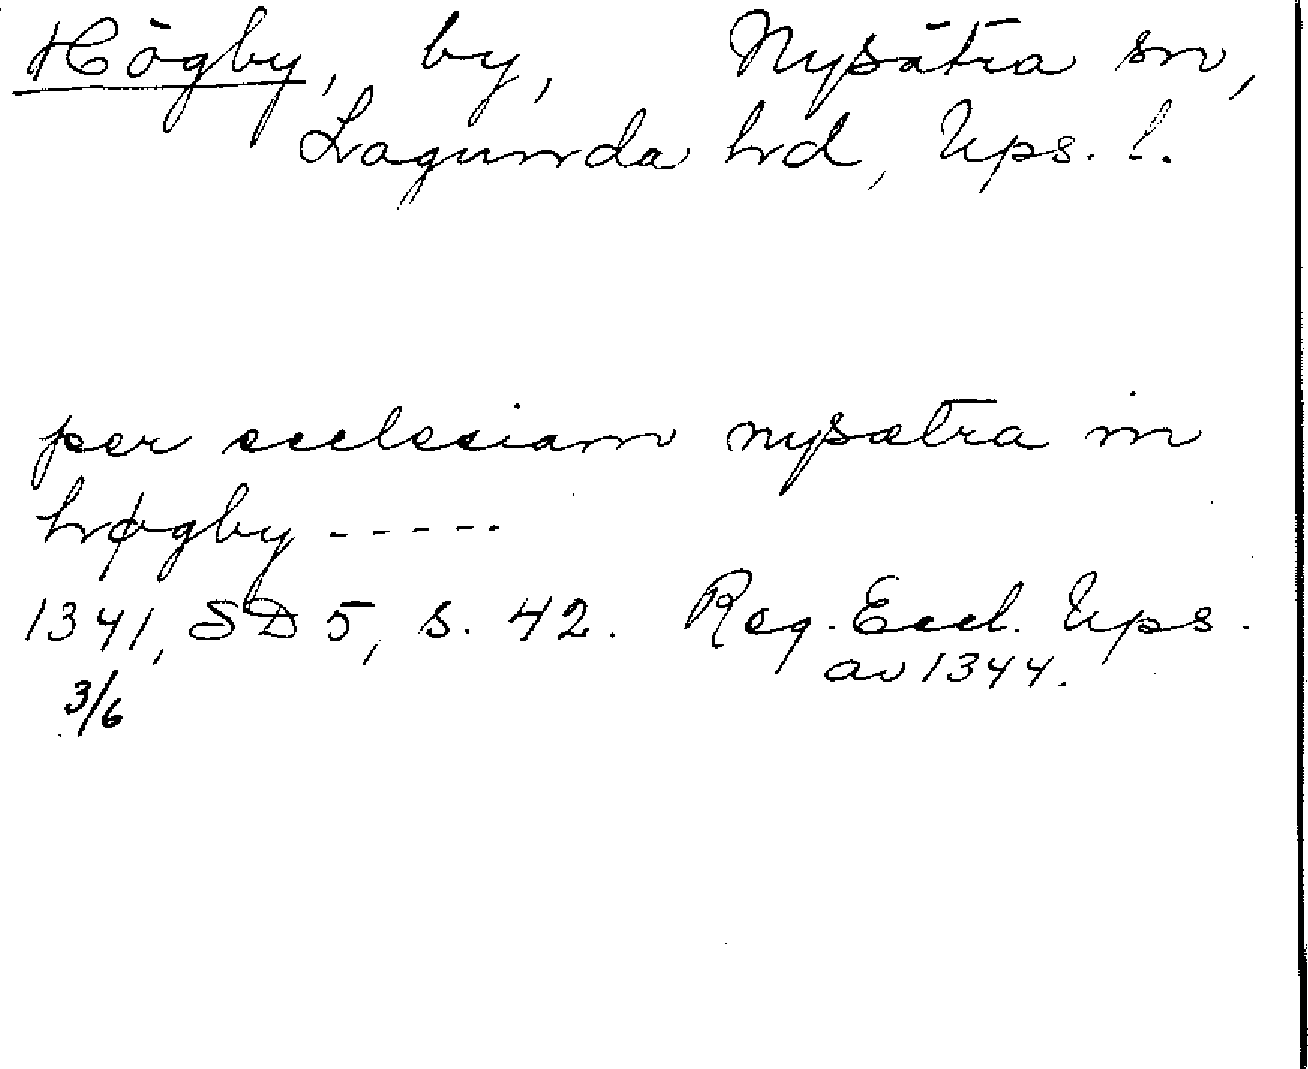 Högby, by, Nysätra sn,
Lagunda hd, Ups. l.
per ecclesiam nysætra in
høgby -----
1341, SD 5, s. 42. Reg. Eccl. Ups.
3/6 av 1344.